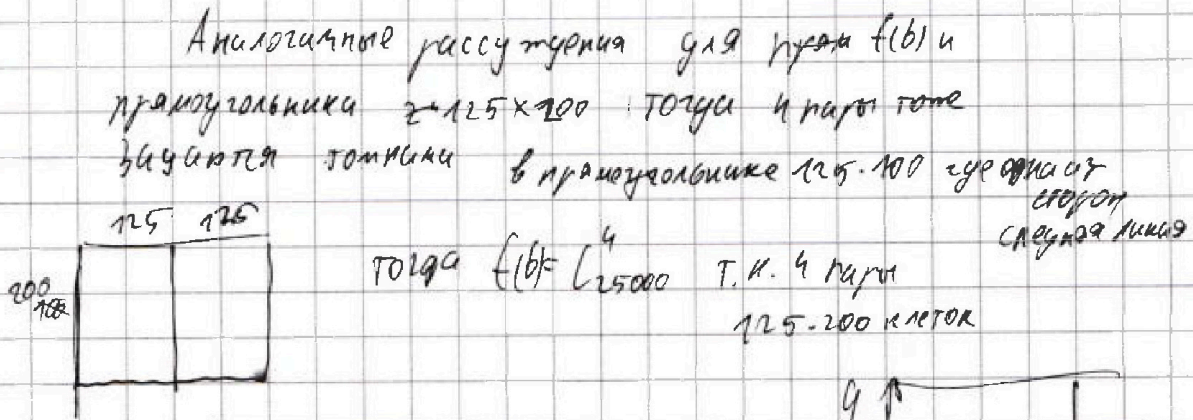 Аналогичные рассуждения для f(b) и
прямоугольника 125×200 тогда 4 пары тоже
задаются точками в прямоугольнике 125·100 где одна из
сторон
средняя линия
125 125
200
тогда f(b)= C⁴₂₅₀₀₀ т.к. 4 пары
125·200 клеток
4